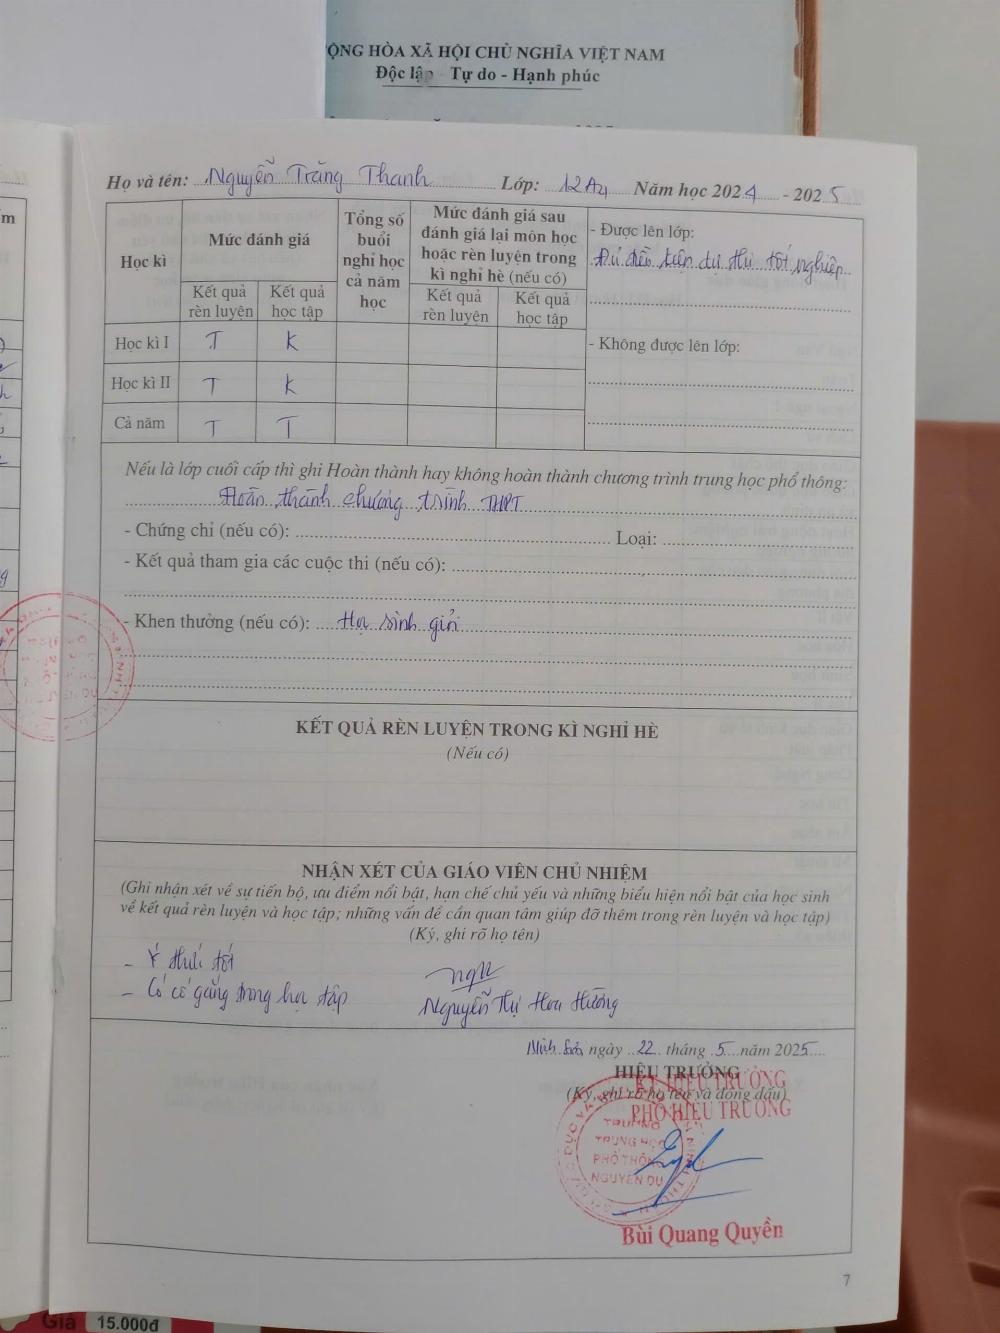 ỘNG HÒA XÃ HỘI CHỦ NGHĨA VIỆT NAM
Độc lập - Tự do - Hạnh phúc
Họ và tên: Nguyễn Trăng Thanh Lớp: 12A4 Năm học 2024 - 2025
Học kì
Mức đánh giá
Kết quả rèn luyện
Kết quả học tập
Tổng số buổi nghỉ học cả năm học
Mức đánh giá sau đánh giá lại môn học hoặc rèn luyện trong kì nghỉ hè (nếu có)
Kết quả rèn luyện
Kết quả học tập
- Được lên lớp:
Đủ điều kiện dự thi tốt nghiệp
- Không được lên lớp:
Học kì I T K
Học kì II T K
Cả năm T T
Nếu là lớp cuối cấp thì ghi Hoàn thành hay không hoàn thành chương trình trung học phổ thông:
Hoàn thành chương trình THPT
- Chứng chỉ (nếu có): Loại:
- Kết quả tham gia các cuộc thi (nếu có):
- Khen thưởng (nếu có): Học sinh giỏi
KẾT QUẢ RÈN LUYỆN TRONG KÌ NGHỈ HÈ
(Nếu có)
NHẬN XÉT CỦA GIÁO VIÊN CHỦ NHIỆM
(Ghi nhận xét về sự tiến bộ, ưu điểm nổi bật, hạn chế chủ yếu và những biểu hiện nổi bật của học sinh
về kết quả rèn luyện và học tập; những vấn đề cần quan tâm giúp đỡ thêm trong rèn luyện và học tập)
(Ký, ghi rõ họ tên)
- Ý thức tốt
- Có cố gắng trong học tập
Nguyễn Thị Hoa Hường
Ninh Sơn, ngày 22 tháng 5 năm 2025
HIỆU TRƯỞNG
(Ký, ghi rõ họ tên và đóng dấu)
KT HIỆU TRƯỞNG
PHÓ HIỆU TRƯỞNG
TRƯỜNG
TRUNG HỌC
PHỔ THÔNG
NGUYỄN DU
Bùi Quang Quyền
7
Giá 15.000đ